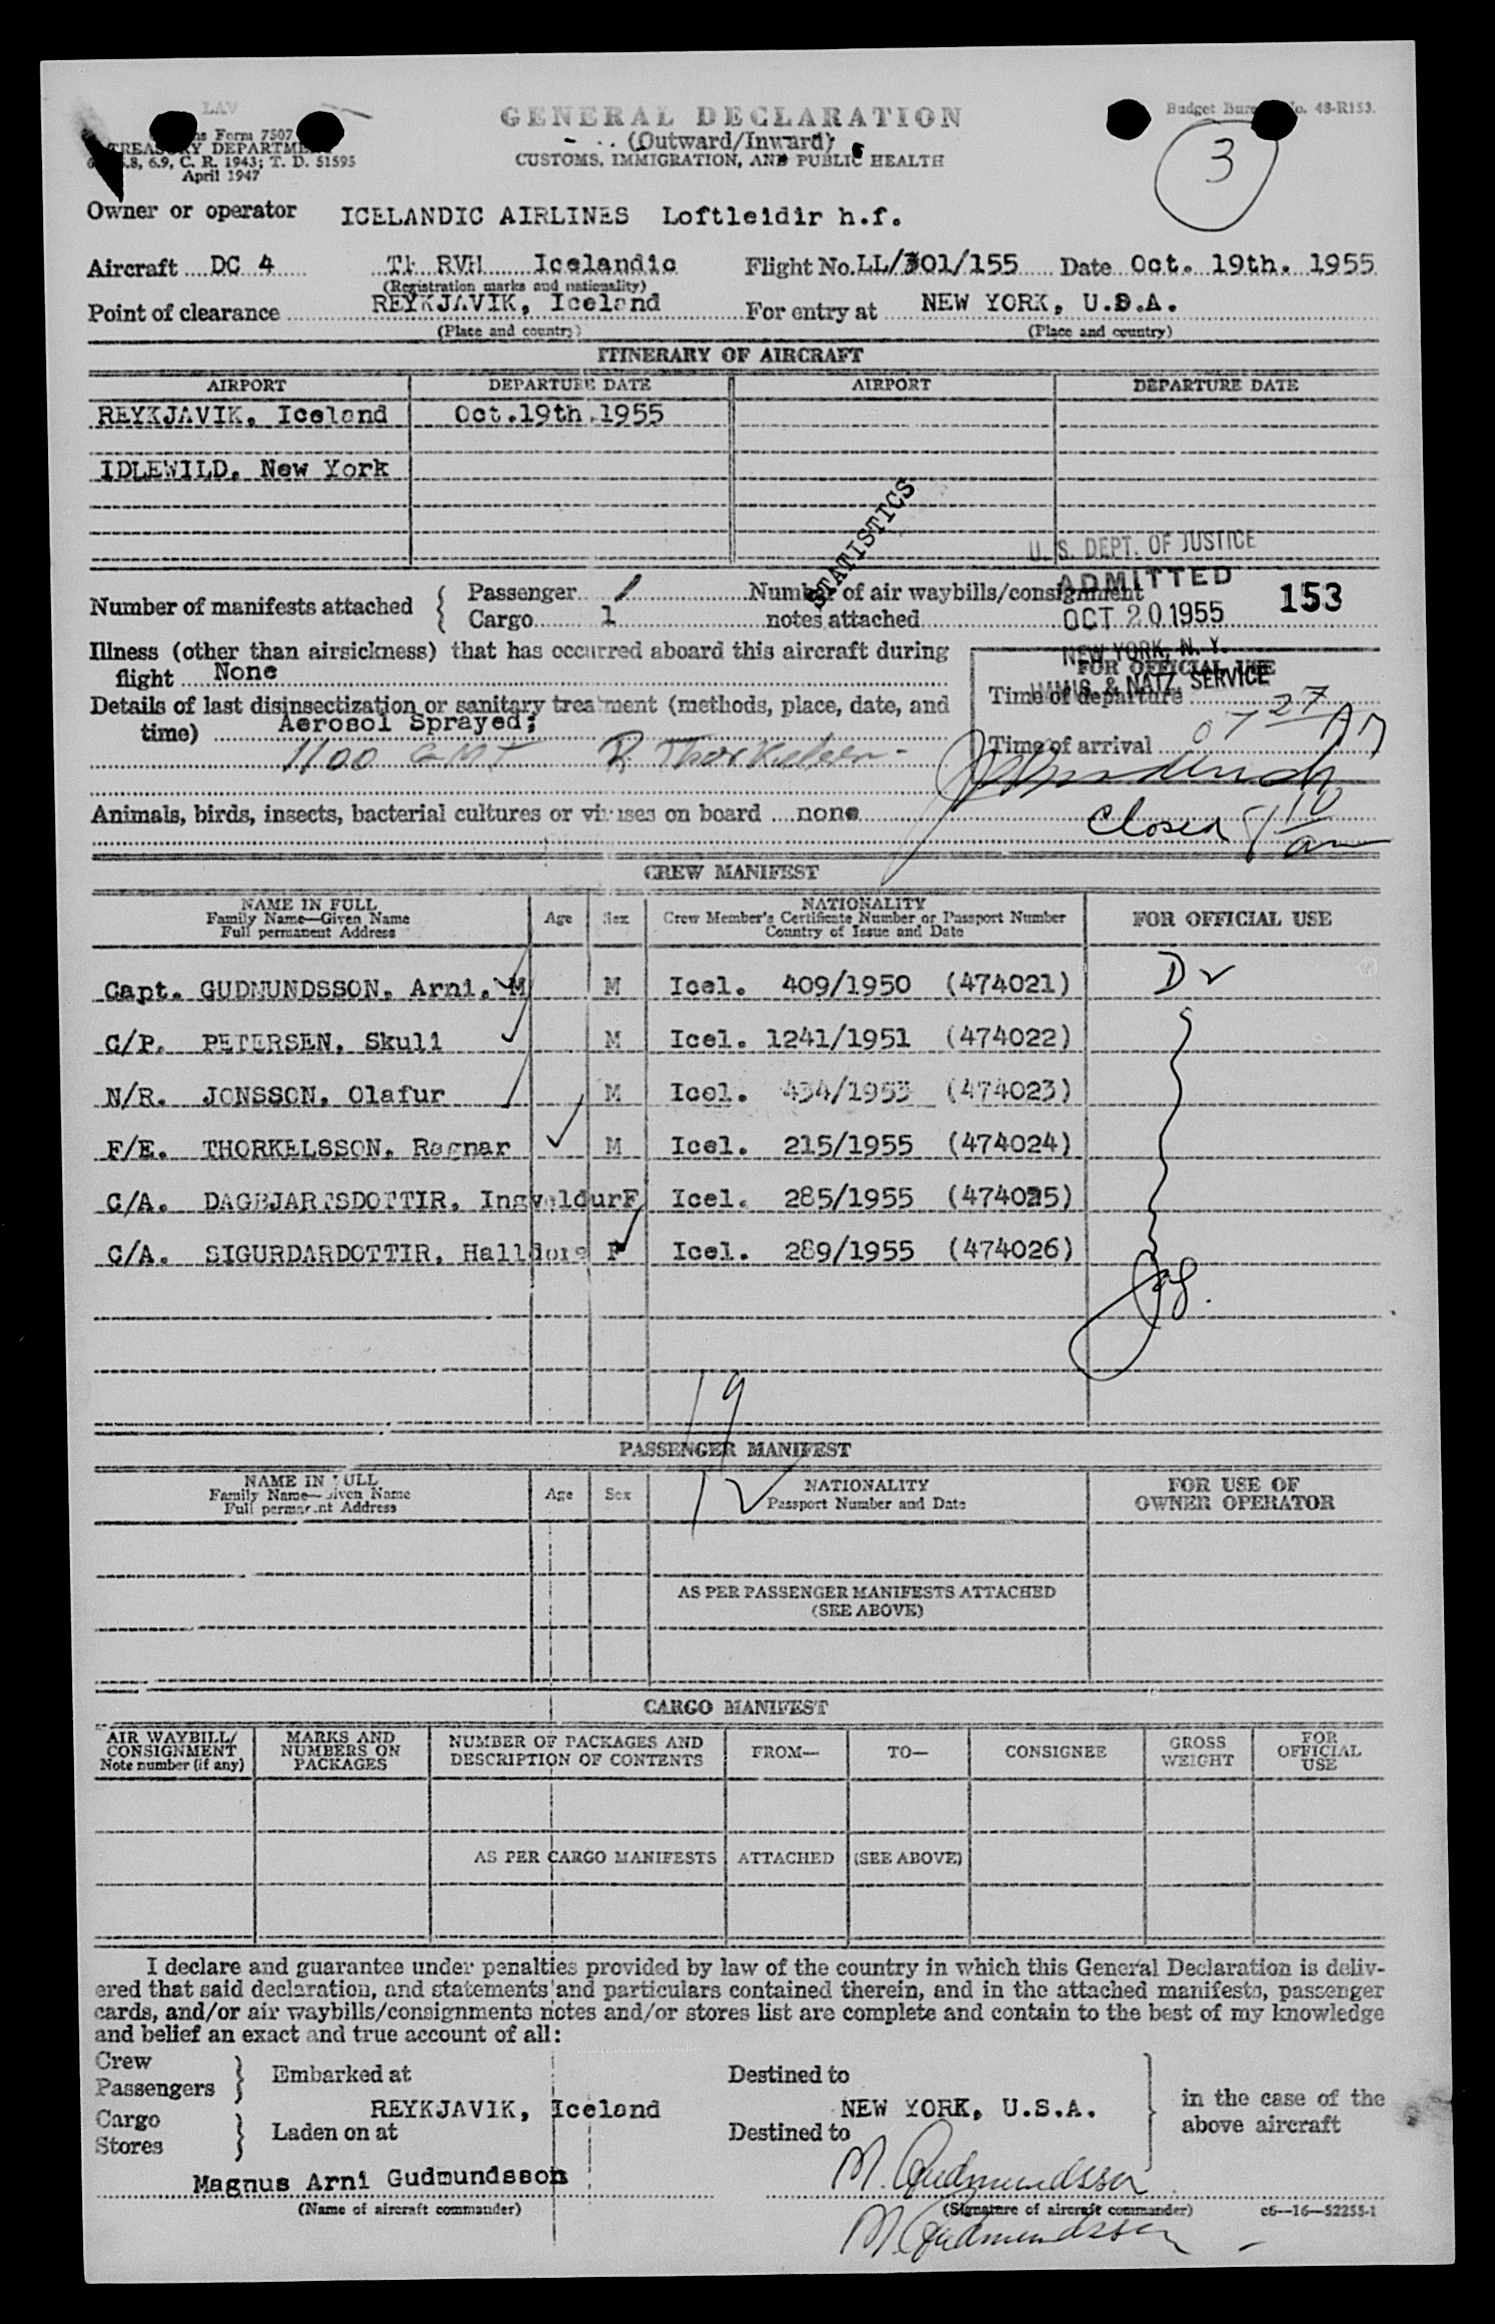 LAV
GENERAL DECLARATION
Budget Bureau No. 48-R153.
(Outward/Inward)
CUSTOMS, IMMIGRATION, AND PUBLIC HEALTH
Form 7507
TREASURY DEPARTMENT
6.8, 6.9, C. R. 1943; T. D. 51595
April 1947
3
Owner or operator ICELANDIC AIRLINES Loftleidir h.f.
Aircraft DC 4 TF RVH Icelandic Flight No. LL/301/155 Date Oct. 19th. 1955
(Registration marks and nationality)
Point of clearance REYKJAVIK, Iceland For entry at NEW YORK, U.S.A.
(Place and country) (Place and country)
ITINERARY OF AIRCRAFT
AIRPORT DEPARTURE DATE AIRPORT DEPARTURE DATE
REYKJAVIK, Iceland Oct.19th.1955
IDLEWILD, New York
STATISTICS
U. S. DEPT. OF JUSTICE
ADMITTED
OCT 20 1955
NEW YORK, N. Y.
IMMIG. & NATZ. SERVICE
153
Number of manifests attached { Passenger 1 Number of air waybills/consignment
Cargo 1 notes attached
Illness (other than airsickness) that has occurred aboard this aircraft during
flight None
FOR OFFICIAL USE
Details of last disinsectization or sanitary treatment (methods, place, date, and
time) Aerosol Sprayed;
1100 GMT R Thorkelsson
Time of departure
Time of arrival 07 27 AM
Animals, birds, insects, bacterial cultures or viruses on board none
Closed 8 10 am
CREW MANIFEST
NAME IN FULL
Family Name—Given Name
Full permanent Address
Age Sex
NATIONALITY
Crew Member's Certificate Number or Passport Number
Country of Issue and Date
FOR OFFICIAL USE
Capt. GUDMUNDSSON, Arni. M M Icel. 409/1950 (474021) D
C/P. PETERSEN, Skuli M Icel. 1241/1951 (474022)
N/R. JONSSON, Olafur M Icel. 434/1953 (474023)
F/E. THORKELSSON, Ragnar M Icel. 215/1955 (474024)
C/A. DAGBJARTSDOTTIR, Ingveldur F Icel. 285/1955 (474025)
C/A. SIGURDARDOTTIR, Halldora F Icel. 289/1955 (474026)
19
PASSENGER MANIFEST
NAME IN FULL
Family Name—Given Name
Full permanent Address
Age Sex
NATIONALITY
Passport Number and Date
FOR USE OF
OWNER OPERATOR
AS PER PASSENGER MANIFESTS ATTACHED
(SEE ABOVE)
CARGO MANIFEST
AIR WAYBILL/
CONSIGNMENT
Note number (if any)
MARKS AND
NUMBERS ON
PACKAGES
NUMBER OF PACKAGES AND
DESCRIPTION OF CONTENTS
FROM— TO— CONSIGNEE
GROSS
WEIGHT
FOR
OFFICIAL
USE
AS PER CARGO MANIFESTS ATTACHED (SEE ABOVE)
I declare and guarantee under penalties provided by law of the country in which this General Declaration is deliv-
ered that said declaration, and statements and particulars contained therein, and in the attached manifests, passenger
cards, and/or air waybills/consignments notes and/or stores list are complete and contain to the best of my knowledge
and belief an exact and true account of all:
Crew
Passengers } Embarked at Destined to
REYKJAVIK, Iceland NEW YORK, U.S.A.
Cargo
Stores } Laden on at Destined to
in the case of the
above aircraft
Magnus Arni Gudmundsson M. Gudmundsson
(Name of aircraft commander) (Signature of aircraft commander) c6—16—52255-1
M. Gudmundsson